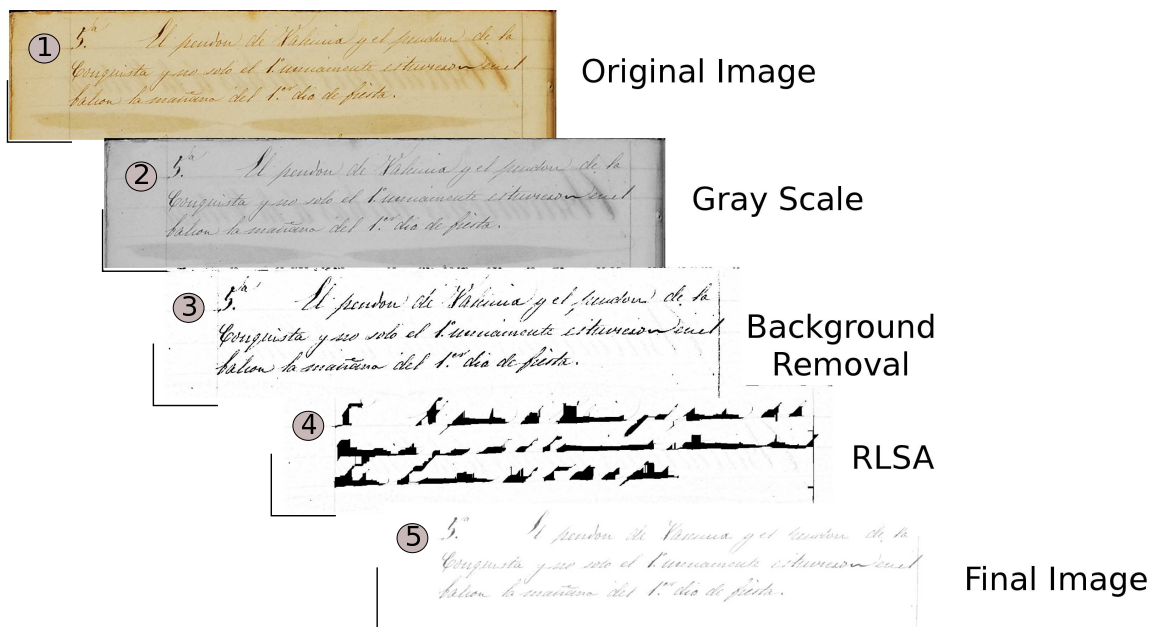 1
5.ª El pendon de Valencia y el pendon de la
Conquista y no solo el 1.º unicamente estuvieron en el
balcon la mañana del 1.er dia de fiesta.
Original Image
2
5.ª El pendon de Valencia y el pendon de la
Conquista y no solo el 1.º unicamente estuvieron en el
balcon la mañana del 1.er dia de fiesta.
Gray Scale
3
5.ª El pendon de Valencia y el pendon de la
Conquista y no solo el 1.º unicamente estuvieron en el
balcon la mañana del 1.er dia de fiesta.
Background
Removal
4
RLSA
5
5.ª El pendon de Valencia y el pendon de la
Conquista y no solo el 1.º unicamente estuvieron en el
balcon la mañana del 1.er dia de fiesta.
Final Image